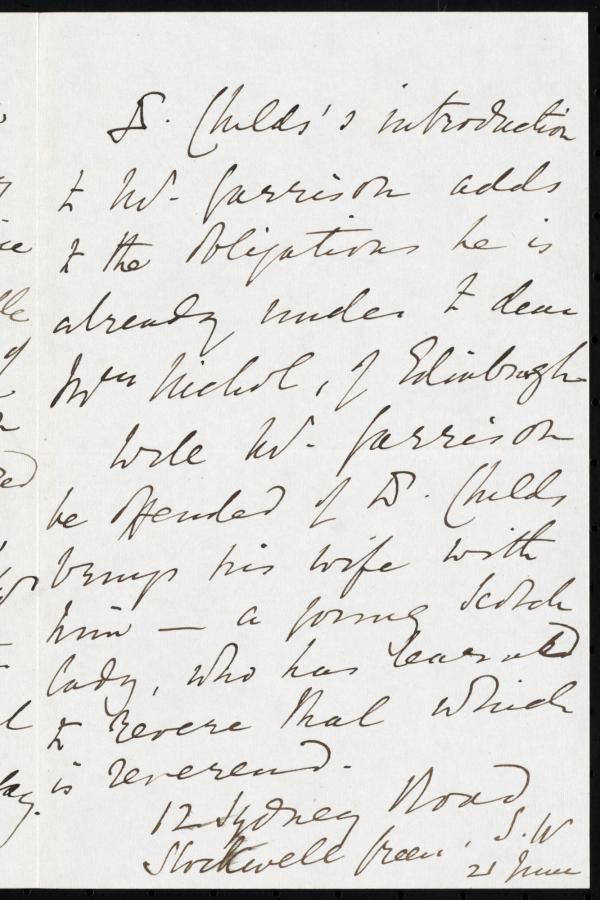 Dr. Childs's introduction
to Mr. Garrison adds
to the obligations he is
already under to dear
Mrs Nichol, of Edinburgh
Will Mr. Garrison
be offended if Dr. Childs
brings his wife with
him — a young Scotch
lady, who has learned
to revere that which
is reverend.
12 Sydney Road
Stockwell Green, S.W
21 June